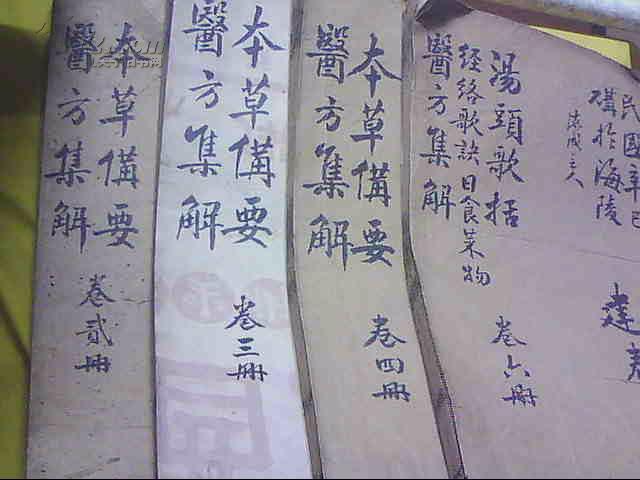 本草備要
醫方集解
卷貳冊
本草備要
醫方集解
卷三冊
本草備要
醫方集解
卷四冊
民國辛巳
於海陵
主人
湯頭歌括
經絡歌訣 日食菜物
醫方集解
卷六冊